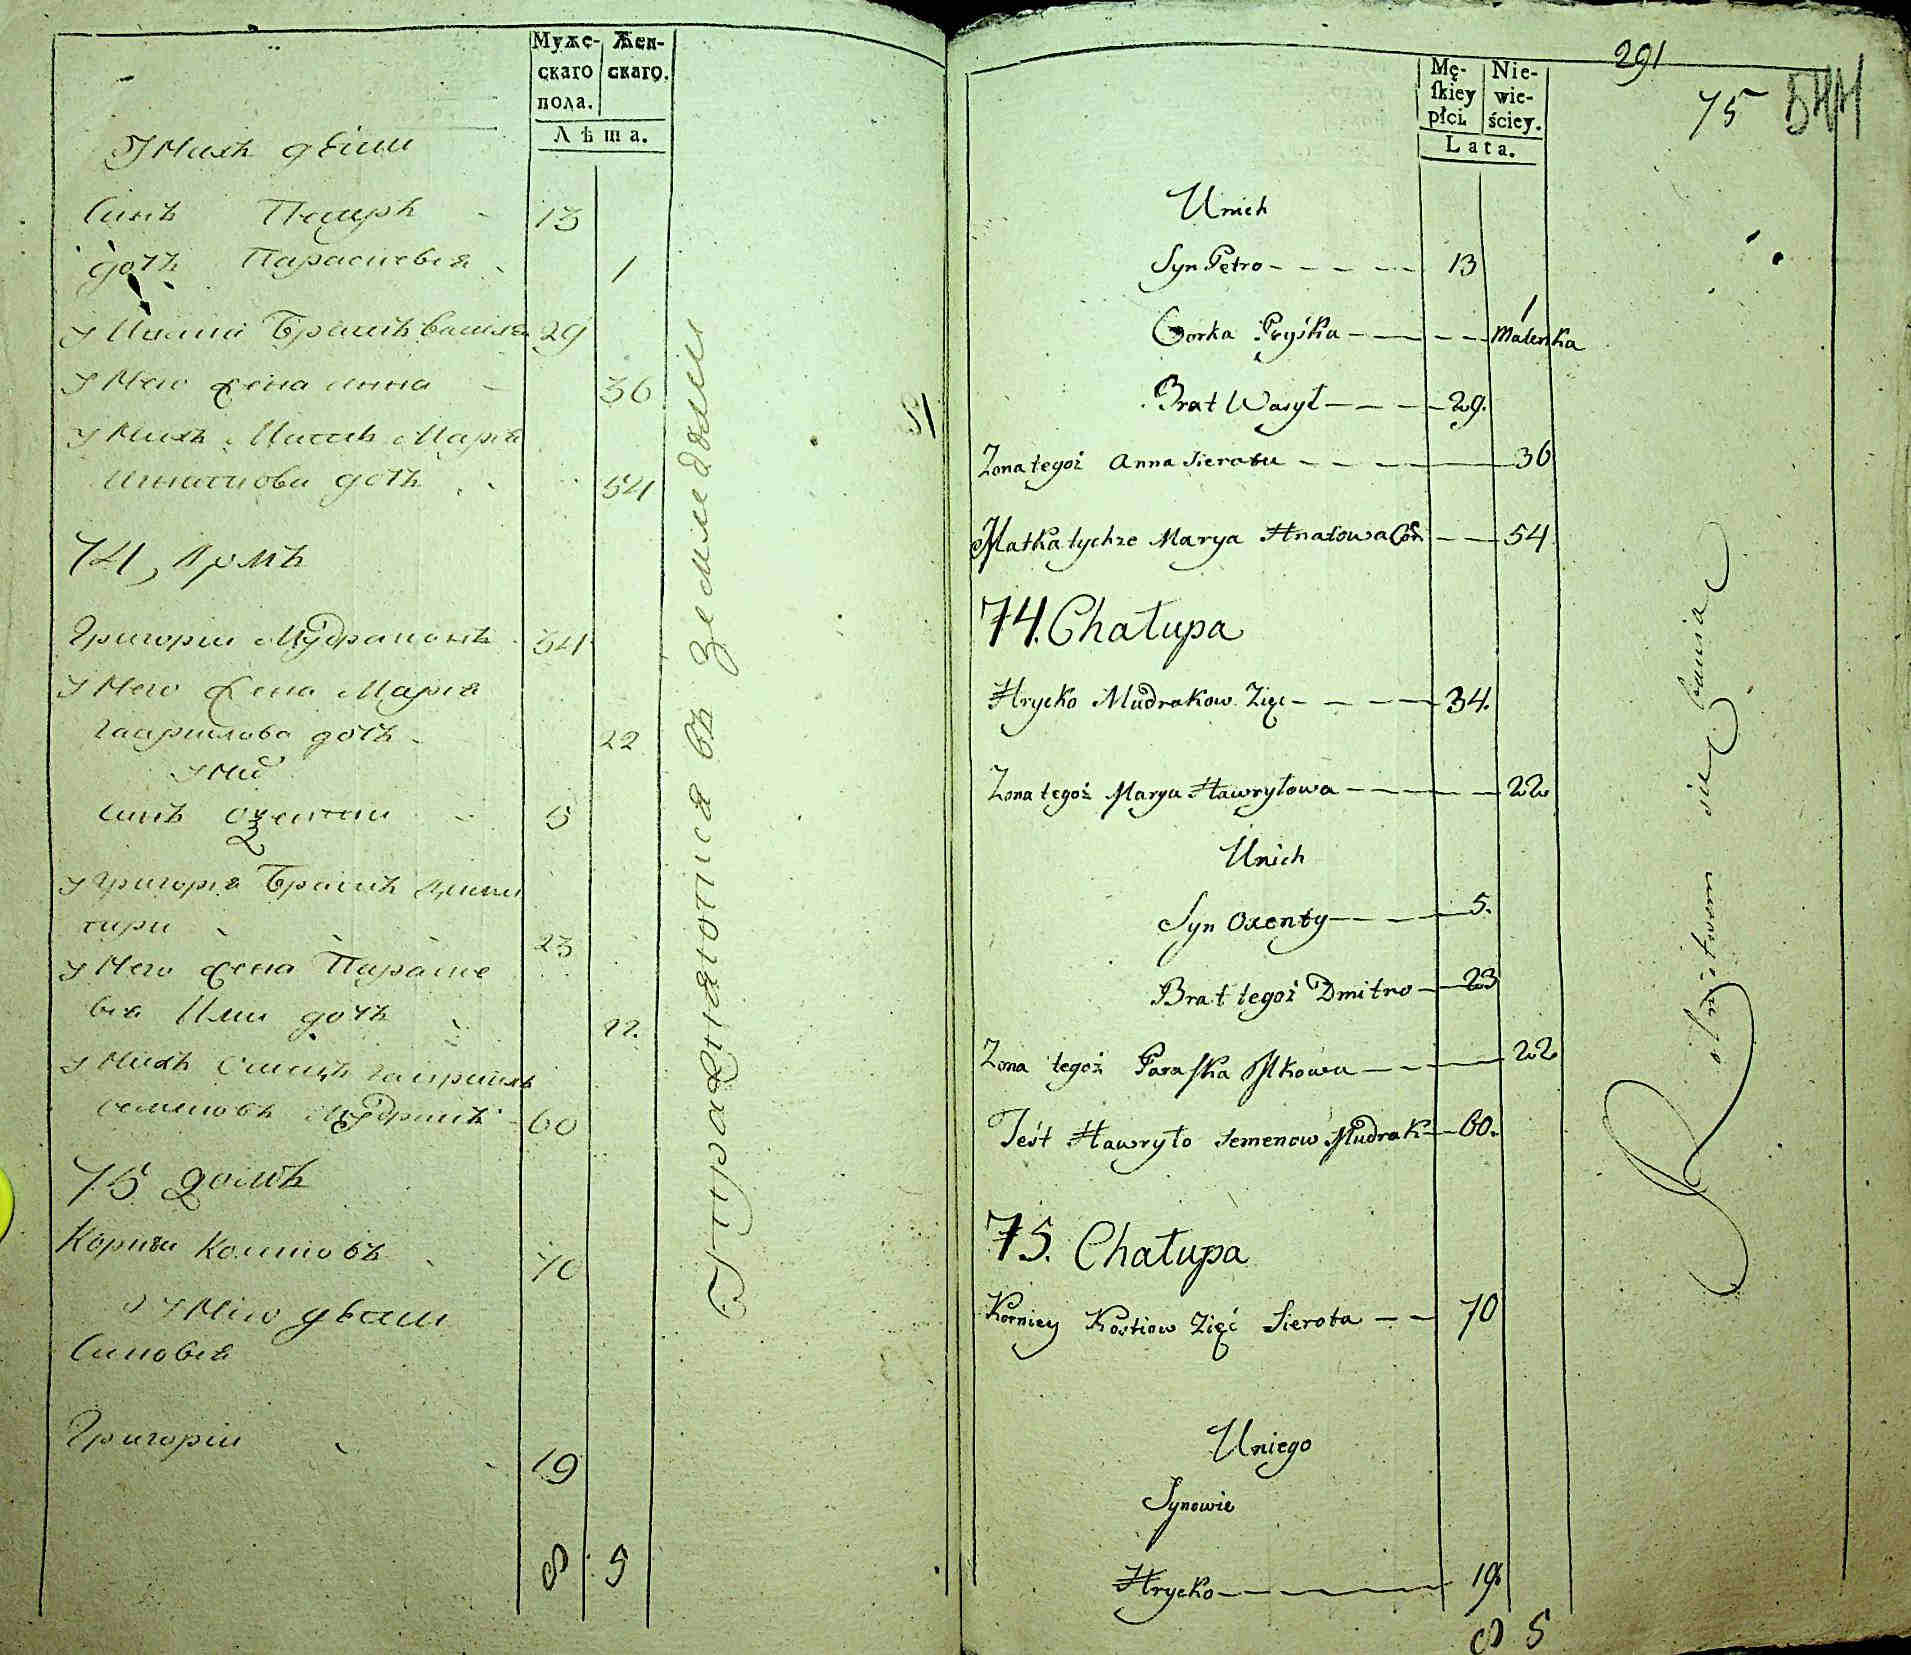 Муже-
скаго
пола.
Жен-
скаго.
Лѣта.
У нихъ дѣти
Синъ Петръ 13
дочь Парасковея 1
Братъ Василь 29
У Него жена Анна 36
У Нихъ Мать Марія
Игнатова дочь 54
74, Домъ
Григорій Мудраковъ 34
У Него жена Марія
Гаврилова дочь 22
У Них
Синъ Оксентій 5
У Григорія Братъ Дими
тири 23
У Него жена Параске
вія дочь 22.
У Нихъ Гаврило
Семеновъ Мудрикъ 60
75 Домъ
Корній Костювъ 70
У Него дѣти
Синовья
Григорій 19
8 5
Упражняются въ земледелии
291
75
Mę-
skiey
płci.
Nie-
wie-
ściey.
Lata.
Unich
Syn Petro 13
Corka Pryśka 1
Malenka
Brat Wasyl 29.
Zona tegoż Anna 36
Matka tychże Marya Hnatowa Cór. 54
74. Chałupa
Hrycko Mudrakow Zięc 34.
Zona tegoż Marya Hawryłowa 22
Unich
Syn Oxenty 5.
Brat tegoż Dmitro 23
Zona tegoż Paraska Ilkowa 22
Teśt Hawryło Semenow Mudrak 60.
75. Chałupa
Korniey Kostiow Zięć Sierota 70
Uniego
Synowie
Hrycko 19
8 5
Rolnictwem się bawią